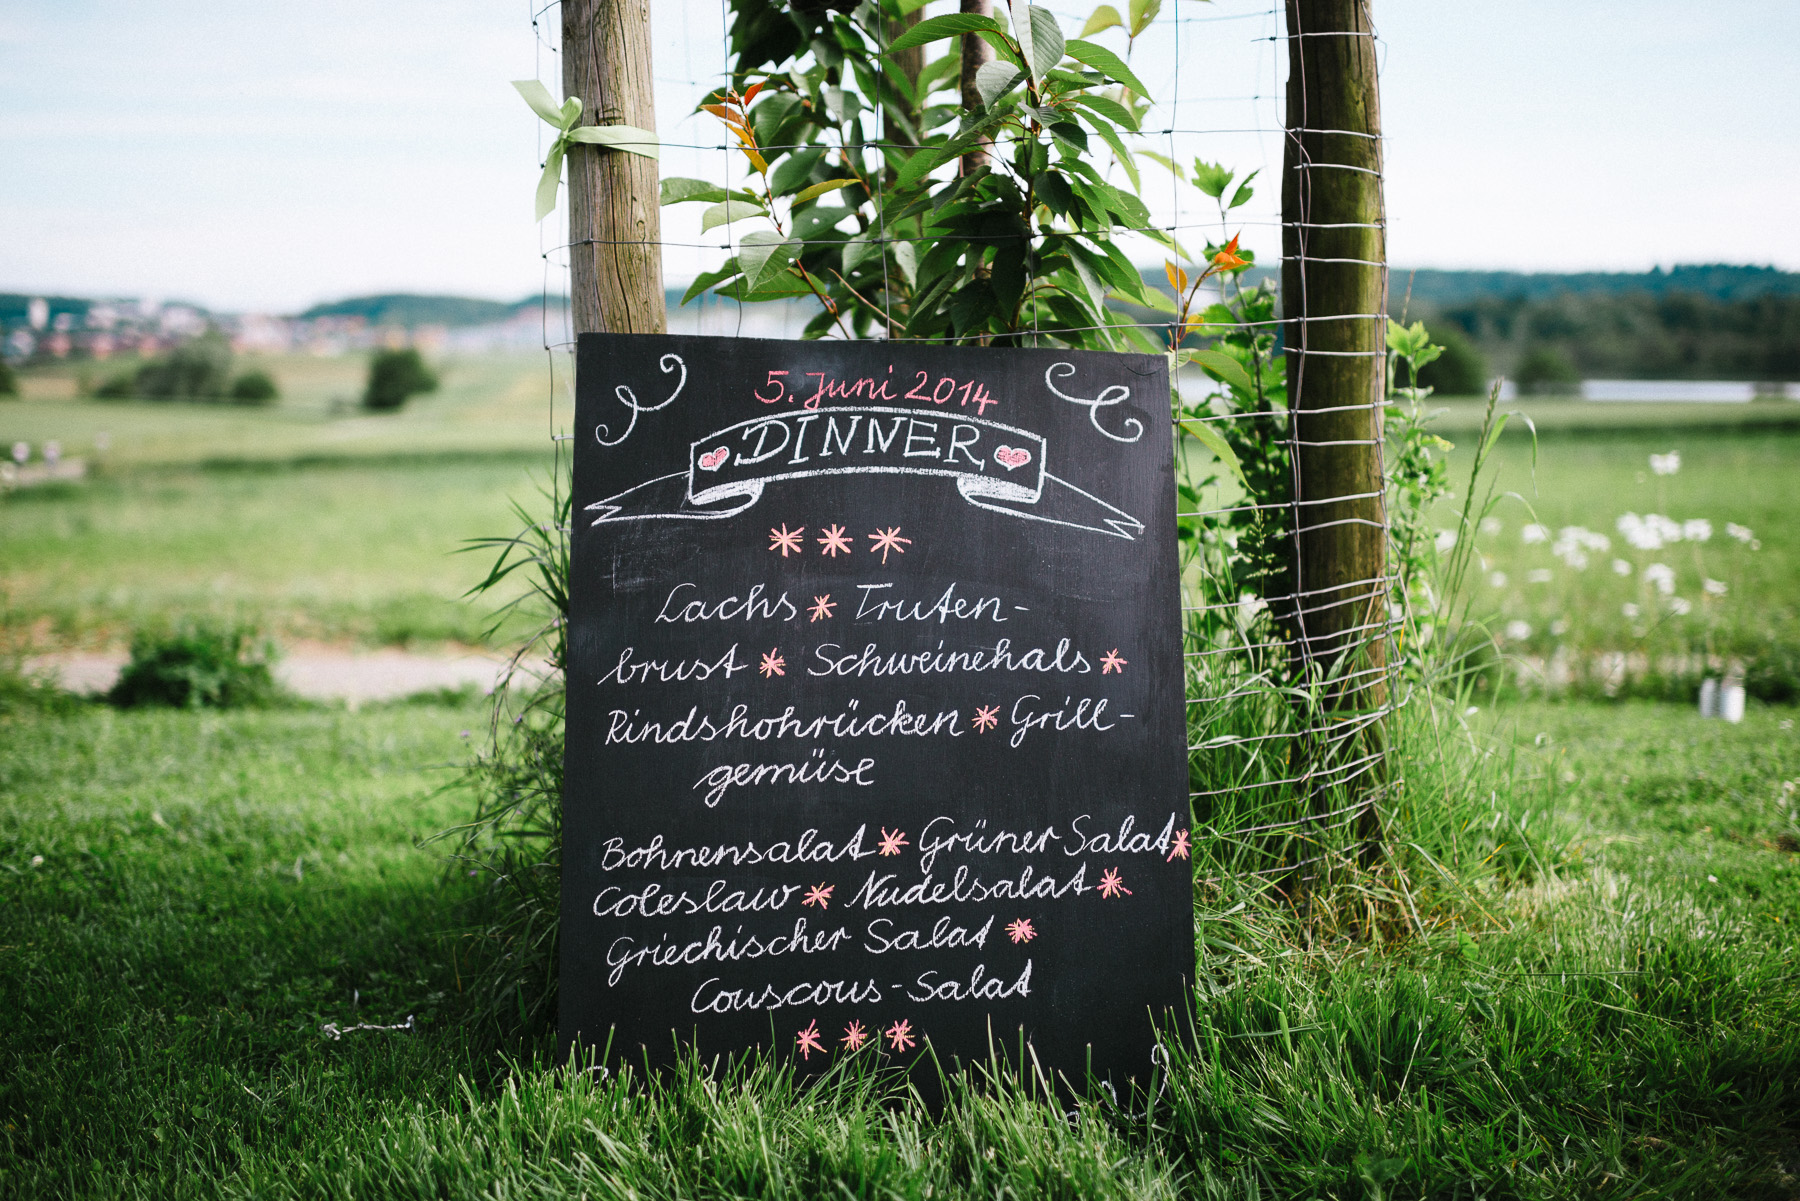 5. Juni 2014
DINNER
Lachs * Truten-
brust * Schweinehals *
Rindshohrücken * Grill-
gemüse
Bohnensalat * Grüner Salat *
Coleslaw * Nudelsalat *
Griechischer Salat *
Couscous-Salat